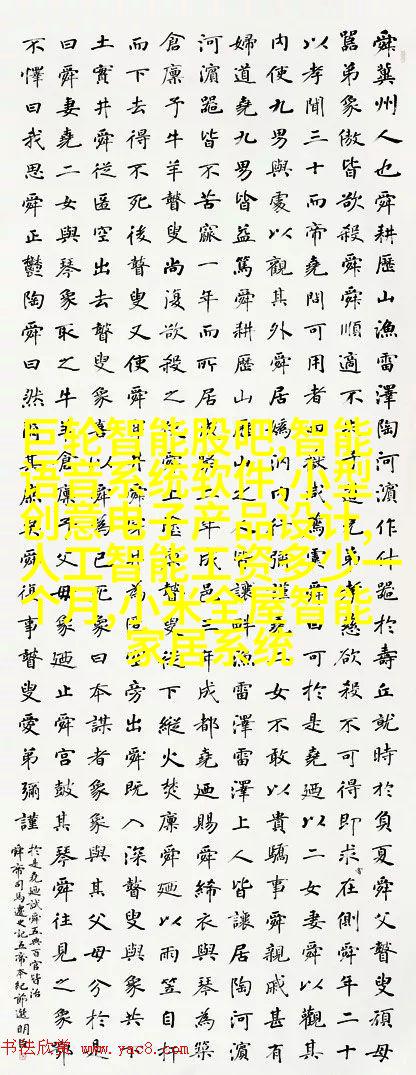 舜冀州人也舜耕歷山漁雷澤陶河濱作什器於壽丘就時於負夏舜父瞽叟頑母
嚚弟象傲皆欲殺舜舜順適不失子道兄弟孝慈欲殺不可得即求在側舜年二十
以孝聞三十而帝堯問可用者四嶽咸薦虞舜曰可於是堯廼以二女妻舜以觀其
內使九男與處以觀其外舜居媯汭內行彌謹堯二女不敢以貴驕事舜親戚甚有
婦道堯九男皆益篤舜耕歷山歷山之人皆讓畔漁雷澤雷澤上人皆讓居陶河濱
河濱器皆不苦窳一年而所居成聚二年成邑三年成都堯廼賜舜絺衣與琴為築
倉廩予牛羊瞽叟尚復欲殺之使舜上塗廩瞽叟從下縱火焚廩舜廼以兩笠自扞
而下去得不死後瞽叟又使舜穿井舜穿井為匿空旁出舜既入深瞽叟與象共下
土實井舜從匿空出去瞽叟象喜以舜為已死象曰本謀者象象與其父母分於是
曰舜妻堯二女與琴象取之牛羊倉廩予父母象廼止舜宮鼓其琴舜往見之象鄂
不懌曰我思舜正鬱陶舜曰然爾其庶矣舜復事瞽叟愛弟彌謹
於是堯廼試舜五典百官皆治
舜帝司馬遷史記五帝本紀節選明
巨轮智能股吧,智能
语音系统软件,小型
创意电子产品设计,
人工智能工资多少一
个月,小米全屋智能
家居系统
书法欣赏 www.yac8.com